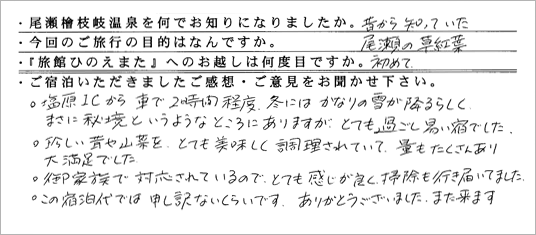 ・尾瀬檜枝岐温泉を何でお知りになりましたか。昔から知っていた
・今回のご旅行の目的はなんですか。尾瀬の草紅葉
・『旅館ひのえまた』へのお越しは何度目ですか。初めて
・ご宿泊いただきましたご感想・ご意見をお聞かせ下さい。
○塩原ICから車で2時間程度、冬にはかなりの雪が降るらしく、
まさに秘境というようなところにありますが、とても過ごし易い宿でした。
○珍しい茸や山菜を、とても美味しく調理されていて、量もたくさんあり
大満足でした。
○御家族で対応されているので、とても感じが良く、掃除も行き届いてました。
○この宿泊代では申し訳ないくらいです。ありがとうございました。また来ます